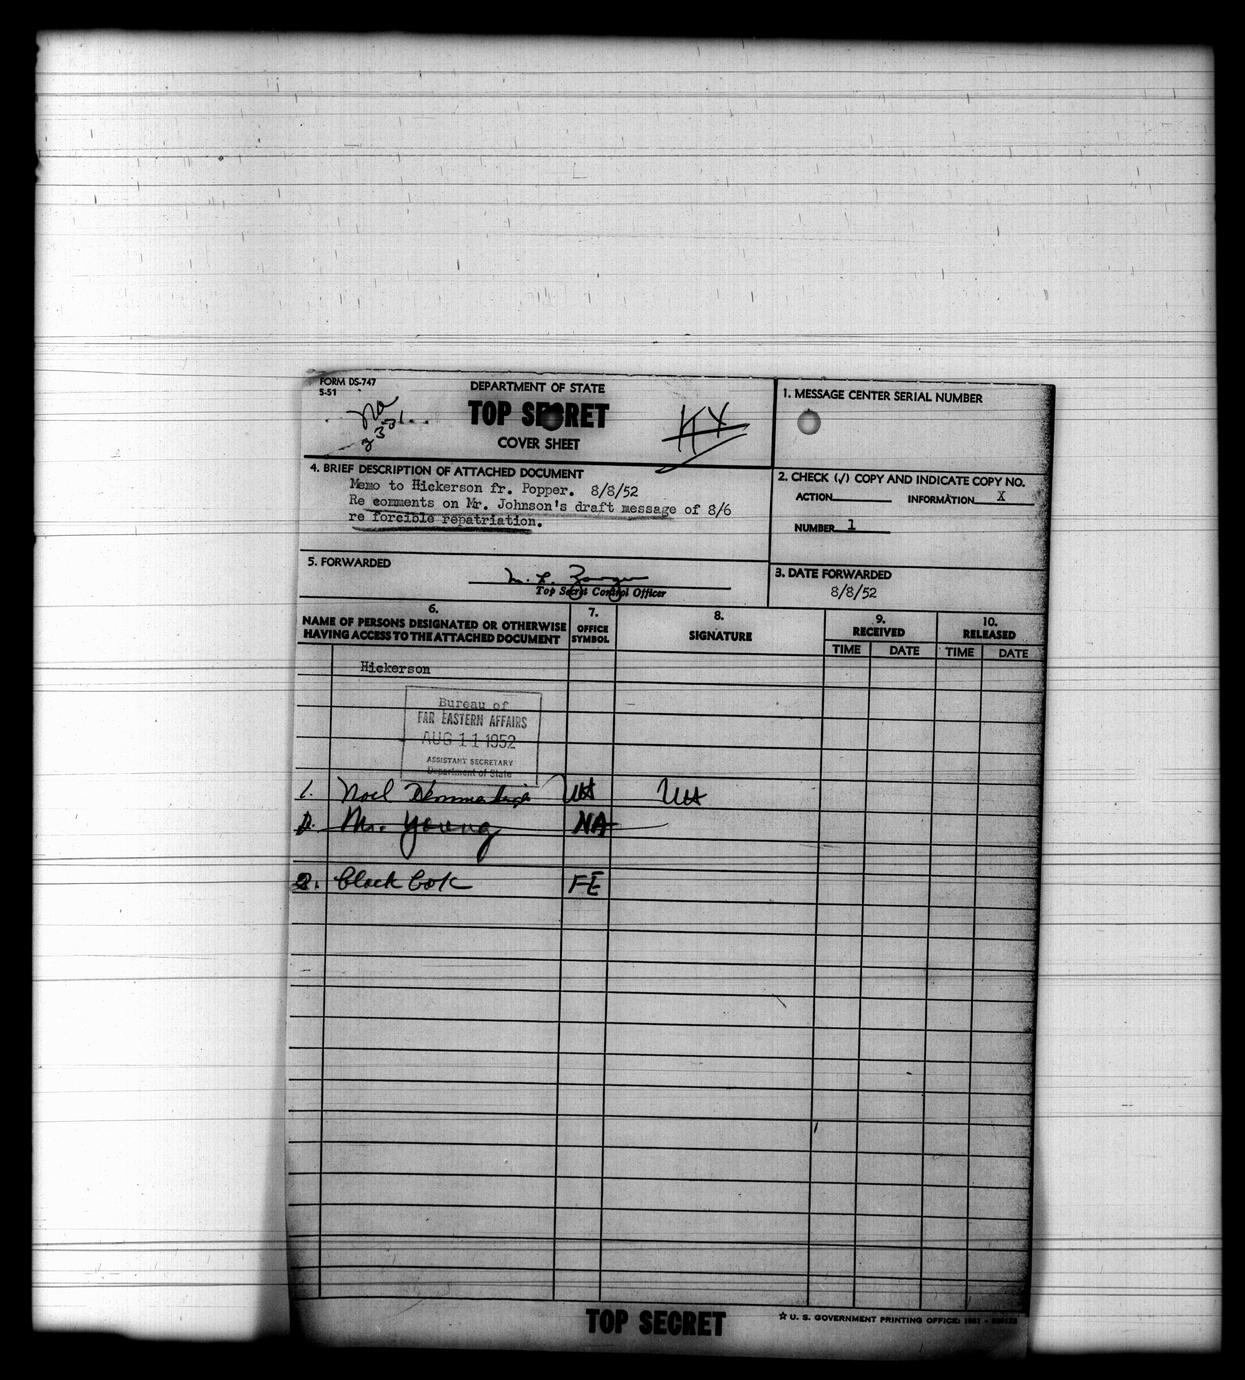 FORM DS-747
5-51
DEPARTMENT OF STATE
TOP SECRET
COVER SHEET
1. MESSAGE CENTER SERIAL NUMBER
4. BRIEF DESCRIPTION OF ATTACHED DOCUMENT
Memo to Hickerson fr. Popper. 8/8/52
Re comments on Mr. Johnson's draft message of 8/6
re forcible repatriation.
2. CHECK (√) COPY AND INDICATE COPY NO.
ACTION INFORMATION X
NUMBER 1
5. FORWARDED
Top Secret Control Officer
3. DATE FORWARDED
8/8/52
6.
NAME OF PERSONS DESIGNATED OR OTHERWISE
HAVING ACCESS TO THE ATTACHED DOCUMENT
7.
OFFICE
SYMBOL
8.
SIGNATURE
9.
RECEIVED
10.
RELEASED
TIME DATE TIME DATE
Hickerson
Bureau of
FAR EASTERN AFFAIRS
AUG 11 1952
ASSISTANT SECRETARY
Department of State
1. Noel
Mr. Young NA
2. Black Book FE
TOP SECRET
☆ U. S. GOVERNMENT PRINTING OFFICE: 1951